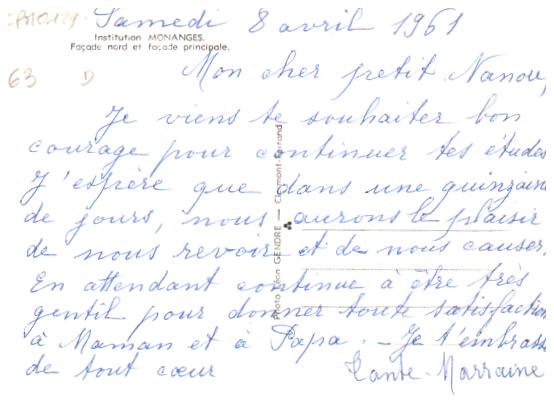 Samedi 8 avril 1961
Institution MONANGES.
Façade nord et façade principale.
63 D
Mon cher petit Nanou,
Je viens te souhaiter bon
courage pour continuer tes études
J'espère que dans une quinzaine
de jours, nous aurons le plaisir
de nous revoir et de nous causer.
En attendant continue à être très
gentil pour donner toute satisfaction
à Maman et à Papa. - Je t'embrasse
de tout cœur Tante-Marraine
Photo Léon GENDRE — Clermont-Ferrand